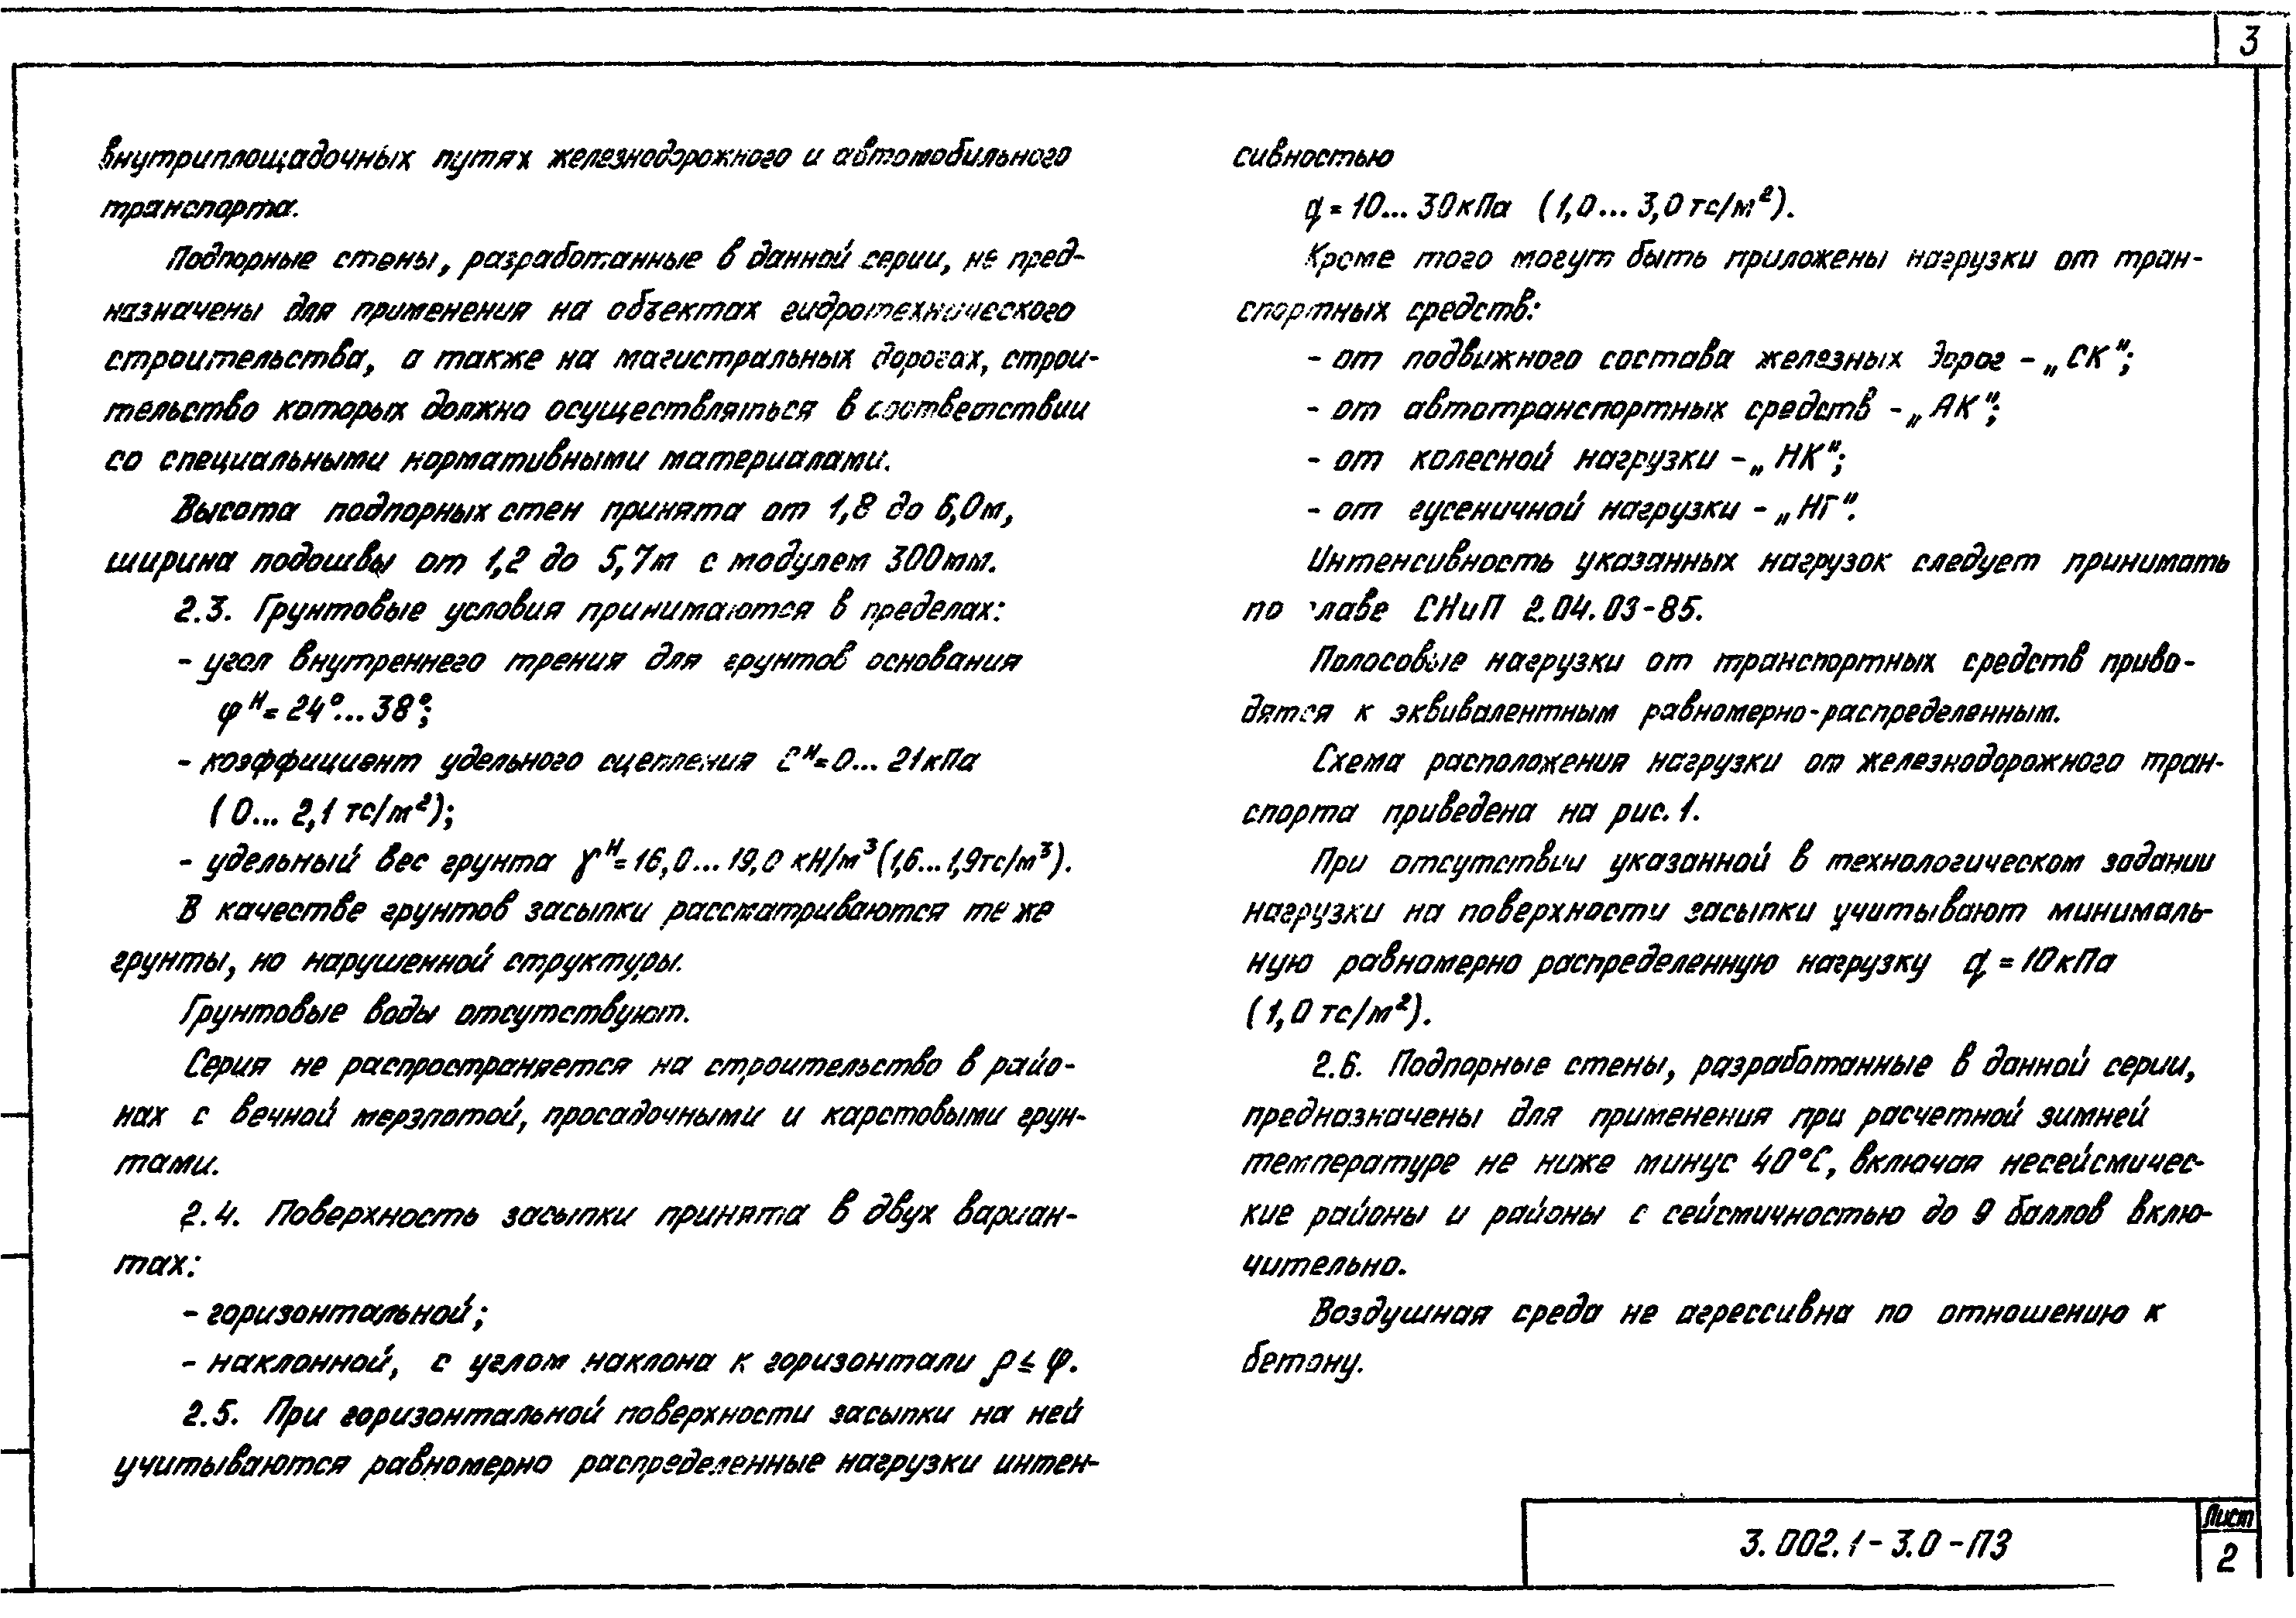 3
внутриплощадочных путях железнодорожного и автомобильного
транспорта.
Подпорные стены, разработанные в данной серии, не пред-
назначены для применения на объектах гидротехнического
строительства, а также на магистральных дорогах, строи-
тельство которых должно осуществляться в соответствии
со специальными нормативными материалами.
Высота подпорных стен принята от 1,8 до 6,0м,
ширина подошвы от 1,2 до 5,7м с модулем 300мм.
2.3. Грунтовые условия принимаются в пределах:
- угол внутреннего трения для грунтов основания
φᴴ= 24°... 38°;
- коэффициент удельного сцепления Cᴴ=0... 21кПа
(0... 2,1 тс/м²);
- удельный вес грунта γᴴ=16,0...19,0 кН/м³(1,6...1,9тс/м³).
В качестве грунтов засыпки рассматриваются те же
грунты, но нарушенной структуры.
Грунтовые воды отсутствуют.
Серия не распространяется на строительство в райо-
нах с вечной мерзлотой, просадочными и карстовыми грун-
тами.
2.4. Поверхность засыпки принята в двух вариан-
тах:
- горизонтальной;
- наклонной, с углом наклона к горизонтали ρ ≤ φ.
2.5. При горизонтальной поверхности засыпки на ней
учитываются равномерно распределенные нагрузки интен-
сивностью
q = 10... 30кПа (1,0... 3,0 тс/м²).
Кроме того могут быть приложены нагрузки от тран-
спортных средств:
- от подвижного состава железных дорог - „СК";
- от автотранспортных средств - „АК";
- от колесной нагрузки - „НК";
- от гусеничной нагрузки - „НГ".
Интенсивность указанных нагрузок следует принимать
по главе СНиП 2.04.03-85.
Полосовые нагрузки от транспортных средств приво-
дятся к эквивалентным равномерно-распределенным.
Схема расположения нагрузки от железнодорожного тран-
спорта приведена на рис. 1.
При отсутствии указанной в технологическом задании
нагрузки на поверхности засыпки учитывают минималь-
ную равномерно распределенную нагрузку q = 10кПа
(1,0 тс/м²).
2.6. Подпорные стены, разработанные в данной серии,
предназначены для применения при расчетной зимней
температуре не ниже минус 40°С, включая несейсмичес-
кие районы и районы с сейсмичностью до 9 баллов вклю-
чительно.
Воздушная среда не агрессивна по отношению к
бетону.
3.002.1-3.0-ПЗ
Лист
2